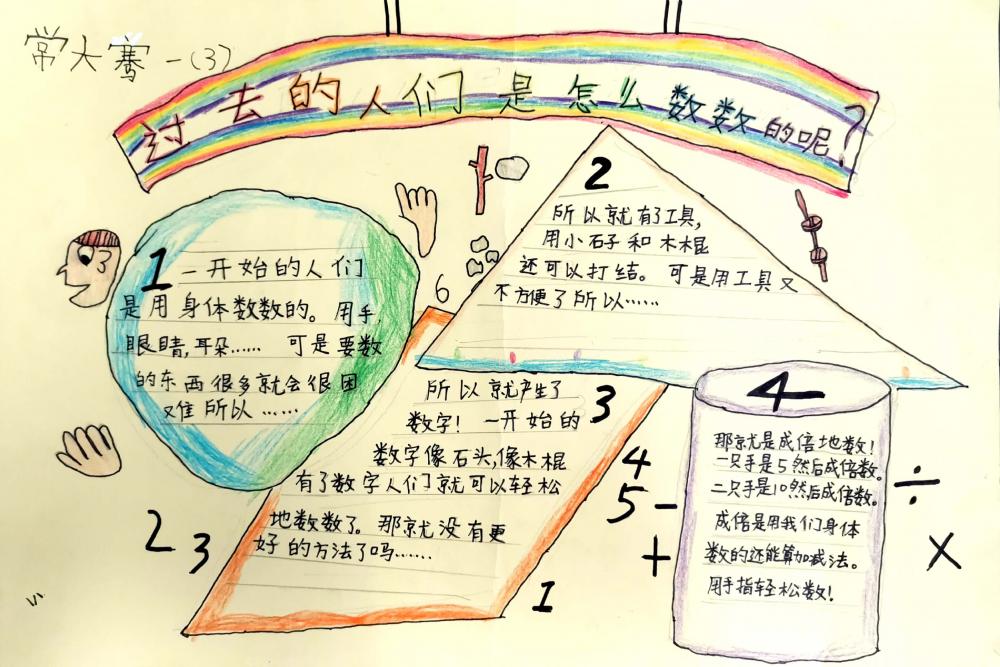 常大骞一(3)
过去的人们是怎么数数的呢?
1
一开始的人们
是用身体数数的。用手,
眼睛,耳朵…… 可是要数
的东西很多就会很困
难所以……
2
所以就有了工具,
用小石子和木棍
还可以打结。可是用工具又
不方便了所以……
6
3
所以就产生了
数字!一开始的
数字像石头,像木棍
有了数字人们就可以轻松
地数数了。那就没有更
好的方法了吗……
4
那就是成倍地数!
一只手是5然后成倍数。
二只手是10然后成倍数。
成倍是用我们身体
数的还能算加减法。
用手指轻松数!
4
5 -
+
÷
×
2
3
1